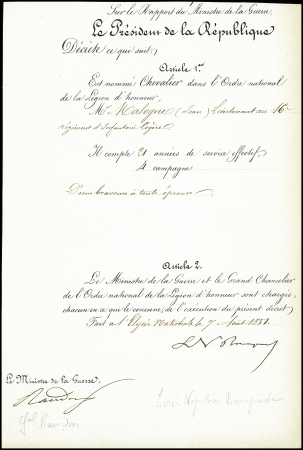 Sur le Rapport du Ministre de la Guerre,
Le Président de la République
Décrète ce qui suit:
Article 1.er
Est nommé Chevalier dans l'Ordre national
de la Légion d'honneur.
M. (Jean) Lieutenant au 16e
Régiment d'Infanterie légère
Il compte 21 années de service effectif,
4 campagnes
D'une bravoure à toute épreuve.
Article 2.
Le Ministre de la Guerre et le Grand Chancelier
de l'Ordre national de la Légion d'honneur sont chargés,
chacun en ce qui le concerne, de l'exécution du présent décret
Fait à l'Elysée National le 7 Août 1851.
Le Ministre de la Guerre,
Randon
Gal Randon
Louis Napoléon Bonaparte